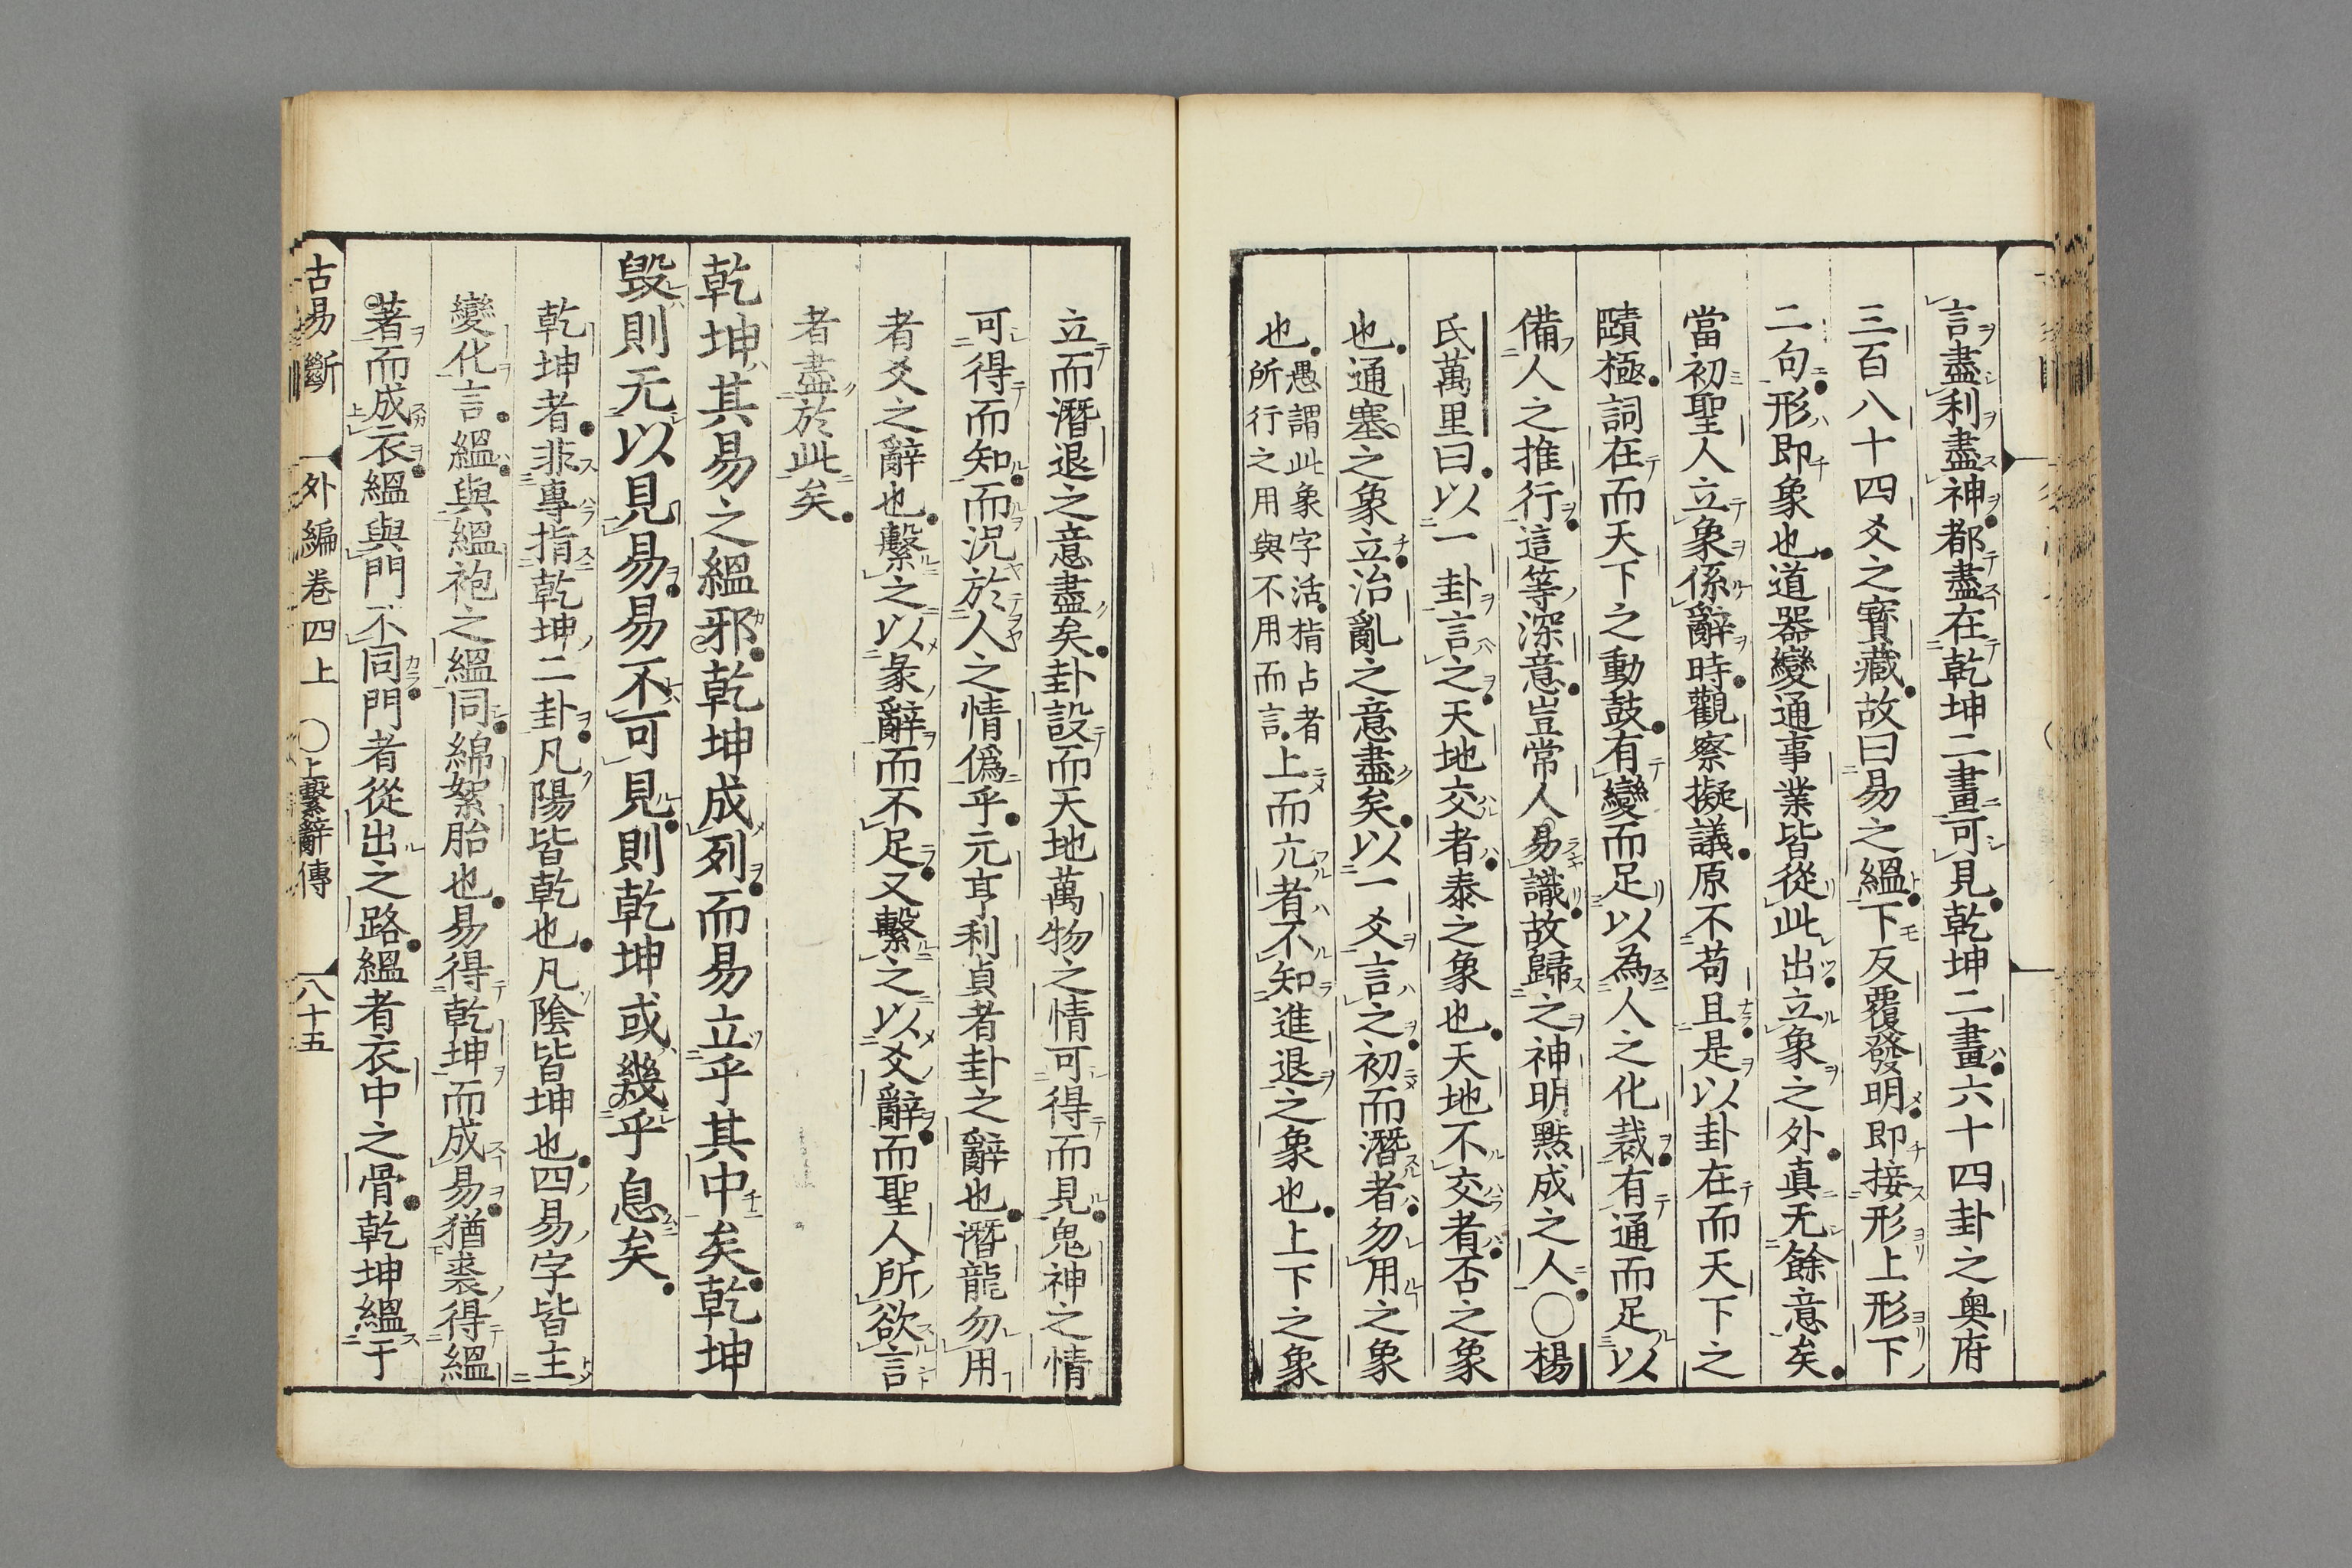 言盡利盡神都盡在乾坤二畫可見乾坤二畫六十四卦之奥府
三百八十四爻之寳藏故曰易之緼下反覆發明即接形上形下
二句形即象也道器變通事業皆從此出立象之外真无餘意矣
當初聖人立象係辭時觀察擬議原不苟且是以卦在而天下之
賾極詞在而天下之動鼓有變而足以為人之化裁有通而足以
備人之推行這等深意豈常人易識故歸之神明黙成之人○楊
氏萬里曰以一卦言之天地交者泰之象也天地不交者否之象
也通塞之象立治亂之意盡矣以一爻言之初而潛者勿用之象
也愚謂此象字活指占者所行之用與不用而言上而亢者不知進退之象也上下之象
立而潛退之意盡矣卦設而天地萬物之情可得而見鬼神之情
可得而知而況於人之情偽乎元亨利貞者卦之辭也潛龍勿用
者爻之辭也繫之以彖辭而不足又繫之以爻辭而聖人所欲言
者盡於此矣
乾坤其易之緼邪乾坤成列而易立乎其中矣乾坤
毀則无以見易易不可見則乾坤或幾乎息矣
乾坤者非專指乾坤二卦凡陽皆乾也凡陰皆坤也四易字皆主
變化言緼與緼袍之緼同綿絮胎也易得乾坤而成易猶裘得緼
著而成衣緼與門不同門者從出之路緼者衣中之骨乾坤緼于
古易斷 外編卷四上 ○上繫辭傳 八十五